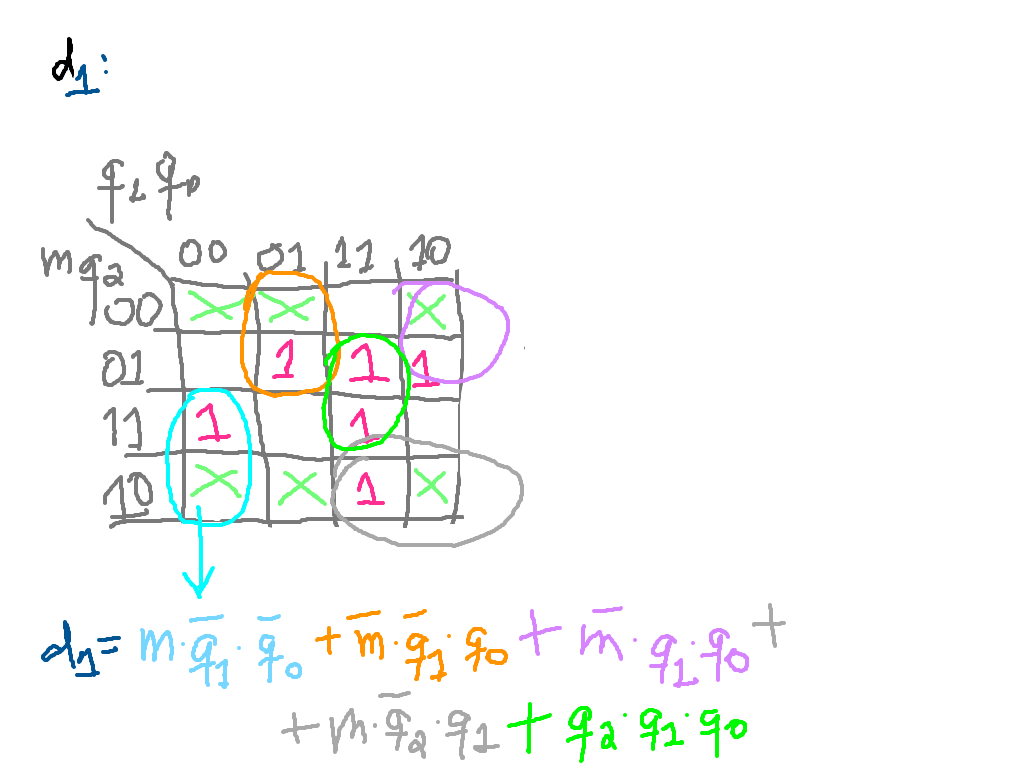 d₁:
q₁ q₀
m q₂ 00 01 11 10
00 X X X
01 1 1 1
11 1 1
10 X X 1 X
d₁ = m·q̅₁·q̅₀ + m̅·q̅₁·q₀ + m̅·q₁·q̅₀ +
+ m·q̅₂·q₁ + q₂·q₁·q₀